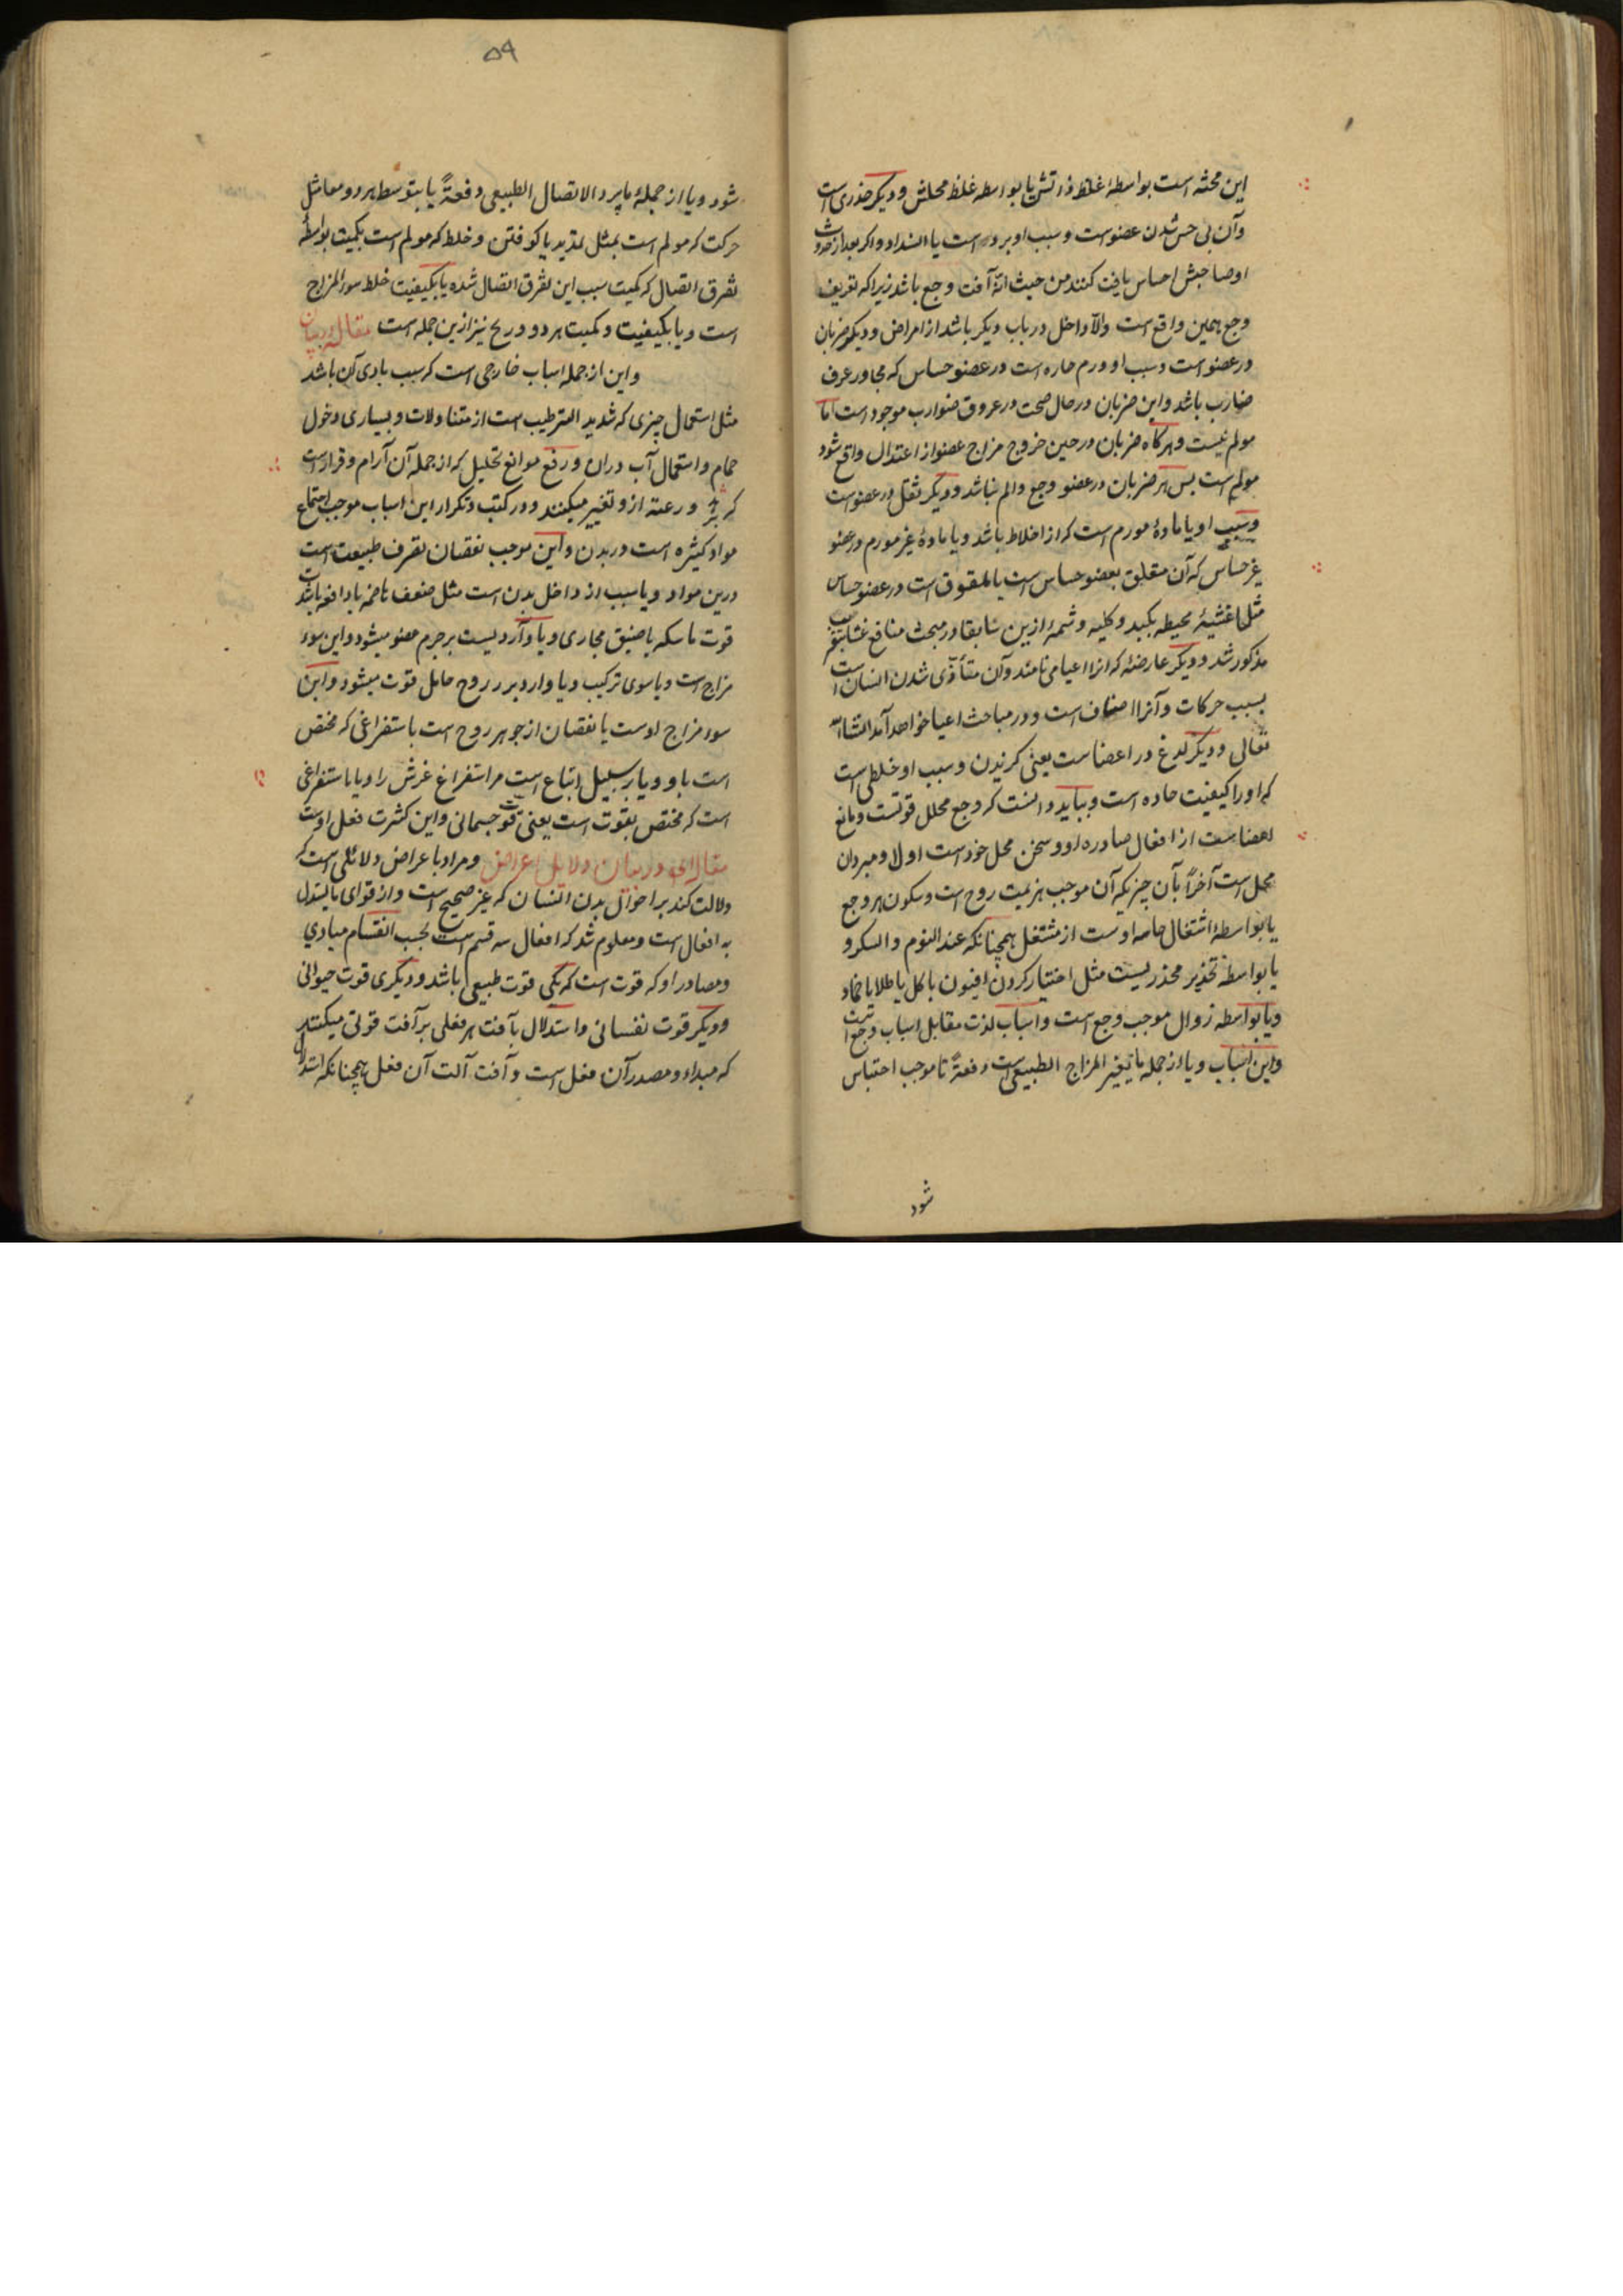 این محثه است بواسطهٔ غلظ ذراتش یا بواسطه غلظ محلش و دیکر خدری است
وآن بی حس شدن عضوست و سبب او برد است یا انسداد و اکر بعد از حدوث
او صاحبش احساس یافت کنند من حیث انهٔ آفت وجع باشد زیرا که تعریف
وجع بهمین واقع است والّا داخل در باب دیکر باشد از امراض و دیکر ضربان
در عضو است و سبب او ورم حاره است در عضو حساس که مجاور عرف
ضارب باشد و این ضربان در حال صحت در عروق ضوارب موجود است اما
مولم نیست و هرکاه ضربان در حین خروج مزاج عضو از اعتدال واقع شود
مولم است بس هر ضربان در عضو وجع و الم نباشد و دیکر ثقل در عضوست
و سبب او یا مادهٔ مورم است که از اخلاط باشد و یا مادهٔ غیر مورم در عضو
غیر حساس که آن متعلق بعضو حساس است یا ملفوق است در عضو حساس
مثل اغشیهٔ محیطه بکبد و کلیه و شمهٔ ازین سابقا در مبحث منافع غشا
مذکور شد و دیکر عارضهٔ که انرا اعیا می نامند وآن متأذی شدن انسان است
بسبب حرکات وآنرا اصناف است و در مباحث اعیا خواهد آمد انشاالله
تعالی و دیکر لدغ در اعضاست یعنی کزیدن و سبب او خلطی است
که او را کیفیت حاده است و بباید دانست که وجع محلل قوتست و مانع
اعضاست از افعال صادره او و مسخن محل خود است اولا و مبرد ان
محل است آخراً بآن چیزیکه آن موجب هزیمت روح است و سکون هر وجع
یا بواسطهٔ اشتغال حاسه اوست از مشتغل همچنانکه عند النوم والسکر و
یا بواسطه تخدیر مخدریست مثل اختیار کردن افیون باکل یا طلا یا ضماد
و یا بواسطه زوال موجب وجع است و اسباب لذت مقابل اسباب وجع است
واین اسباب و یا از جمله ما یغیر المزاج الطبیعی است دفعةً تا موجب احتباس
شود
۵۹
شود و یا از جملهٔ ما یرد الاتصال الطبیعی دفعةً یا بتوسط هر دو معا مثل
حرکت که مولم است بمثل تمدید یا کوفتن و خلط که مولم است بکمیت بواسطهٔ
تفرق اتصال که کمیت سبب این تفرق اتصال شده یا بکیفیت خلط سوء المزاج
است و یا بکیفیت و کمیت هر دو و ریح نیز ازین جمله است مقاله در بیان
و این از جمله اسباب خارجی است که سبب بادی آن باشد
مثل استعمال چیزی که شدید الترطیب است از متناولات و بسیاری دخول
حمام و استعمال آب دران و رفع موانع تحلیل که از جمله آن آرام و قرار است
که و رعته ازو تغییر میکنند و در کتب و تکرار این اسباب موجب اجتماع
مواد کثیره است در بدن و این موجب نقصان تصرف طبیعت است
درین مواد و یا سبب از داخل بدن است مثل ضعف هاضمه یا دافعه باشد
قوت ماسکه یا ضیق مجاری و یا واردیست بر جرم عضو میشود و این سوء
مزاج است و یا سوی ترکیب و یا وارد بر روح حامل قوت میشود و این
سوء مزاج اوست یا نقصان از جوهر روح است باستفراغی که مختص
است باو و یا بر سبیل اتباع است مر استفراغ غرش را و یا باستفراغی
است که مختص بقوت است یعنی قوت جسمانی و این کثرت فعل اوست
مقاله در بیان دلایل اعراض و مراد باعراض دلائلی است که
دلالت کند بر احوال بدن انسان که غیر صحیح است و از قوای ما یستدل
به افعال است و معلوم شد که افعال سه قسم است بحسب انقسام مبادی
و مصادر او که قوت است که یکی قوت طبیعی باشد و دیکری قوت حیوانی
و دیکر قوت نفسانی و استدلال بآفت هر فعلی بر آفت قوتی میکنند
که مبداء و مصدر آن فعل است و آفت آلت آن فعل همچنانکه استدلال